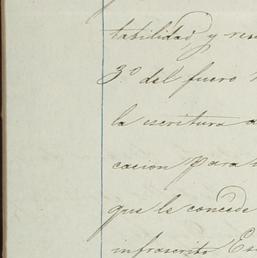 tabilidad, y res
3.º del fuero
la escritura o
cacion para
que le concede
infrascrito Es